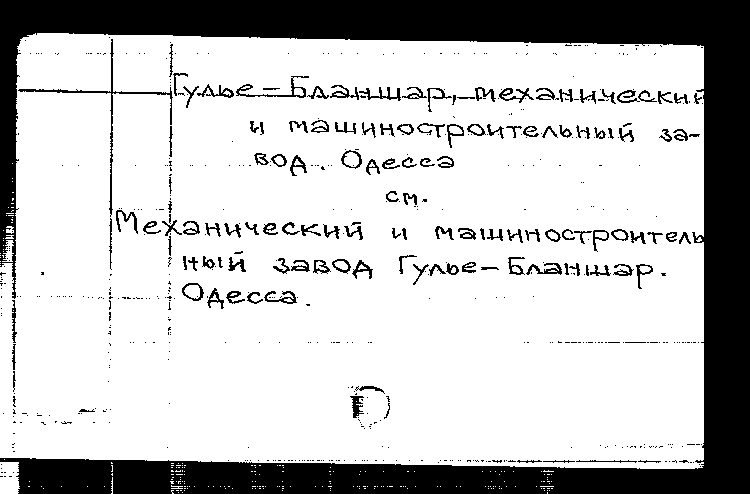 Гулье-Бланшар, механический
и машиностроительный за-
вод. Одесса
см.
Механический и машиностроитель
ный завод Гулье-Бланшар.
Одесса.